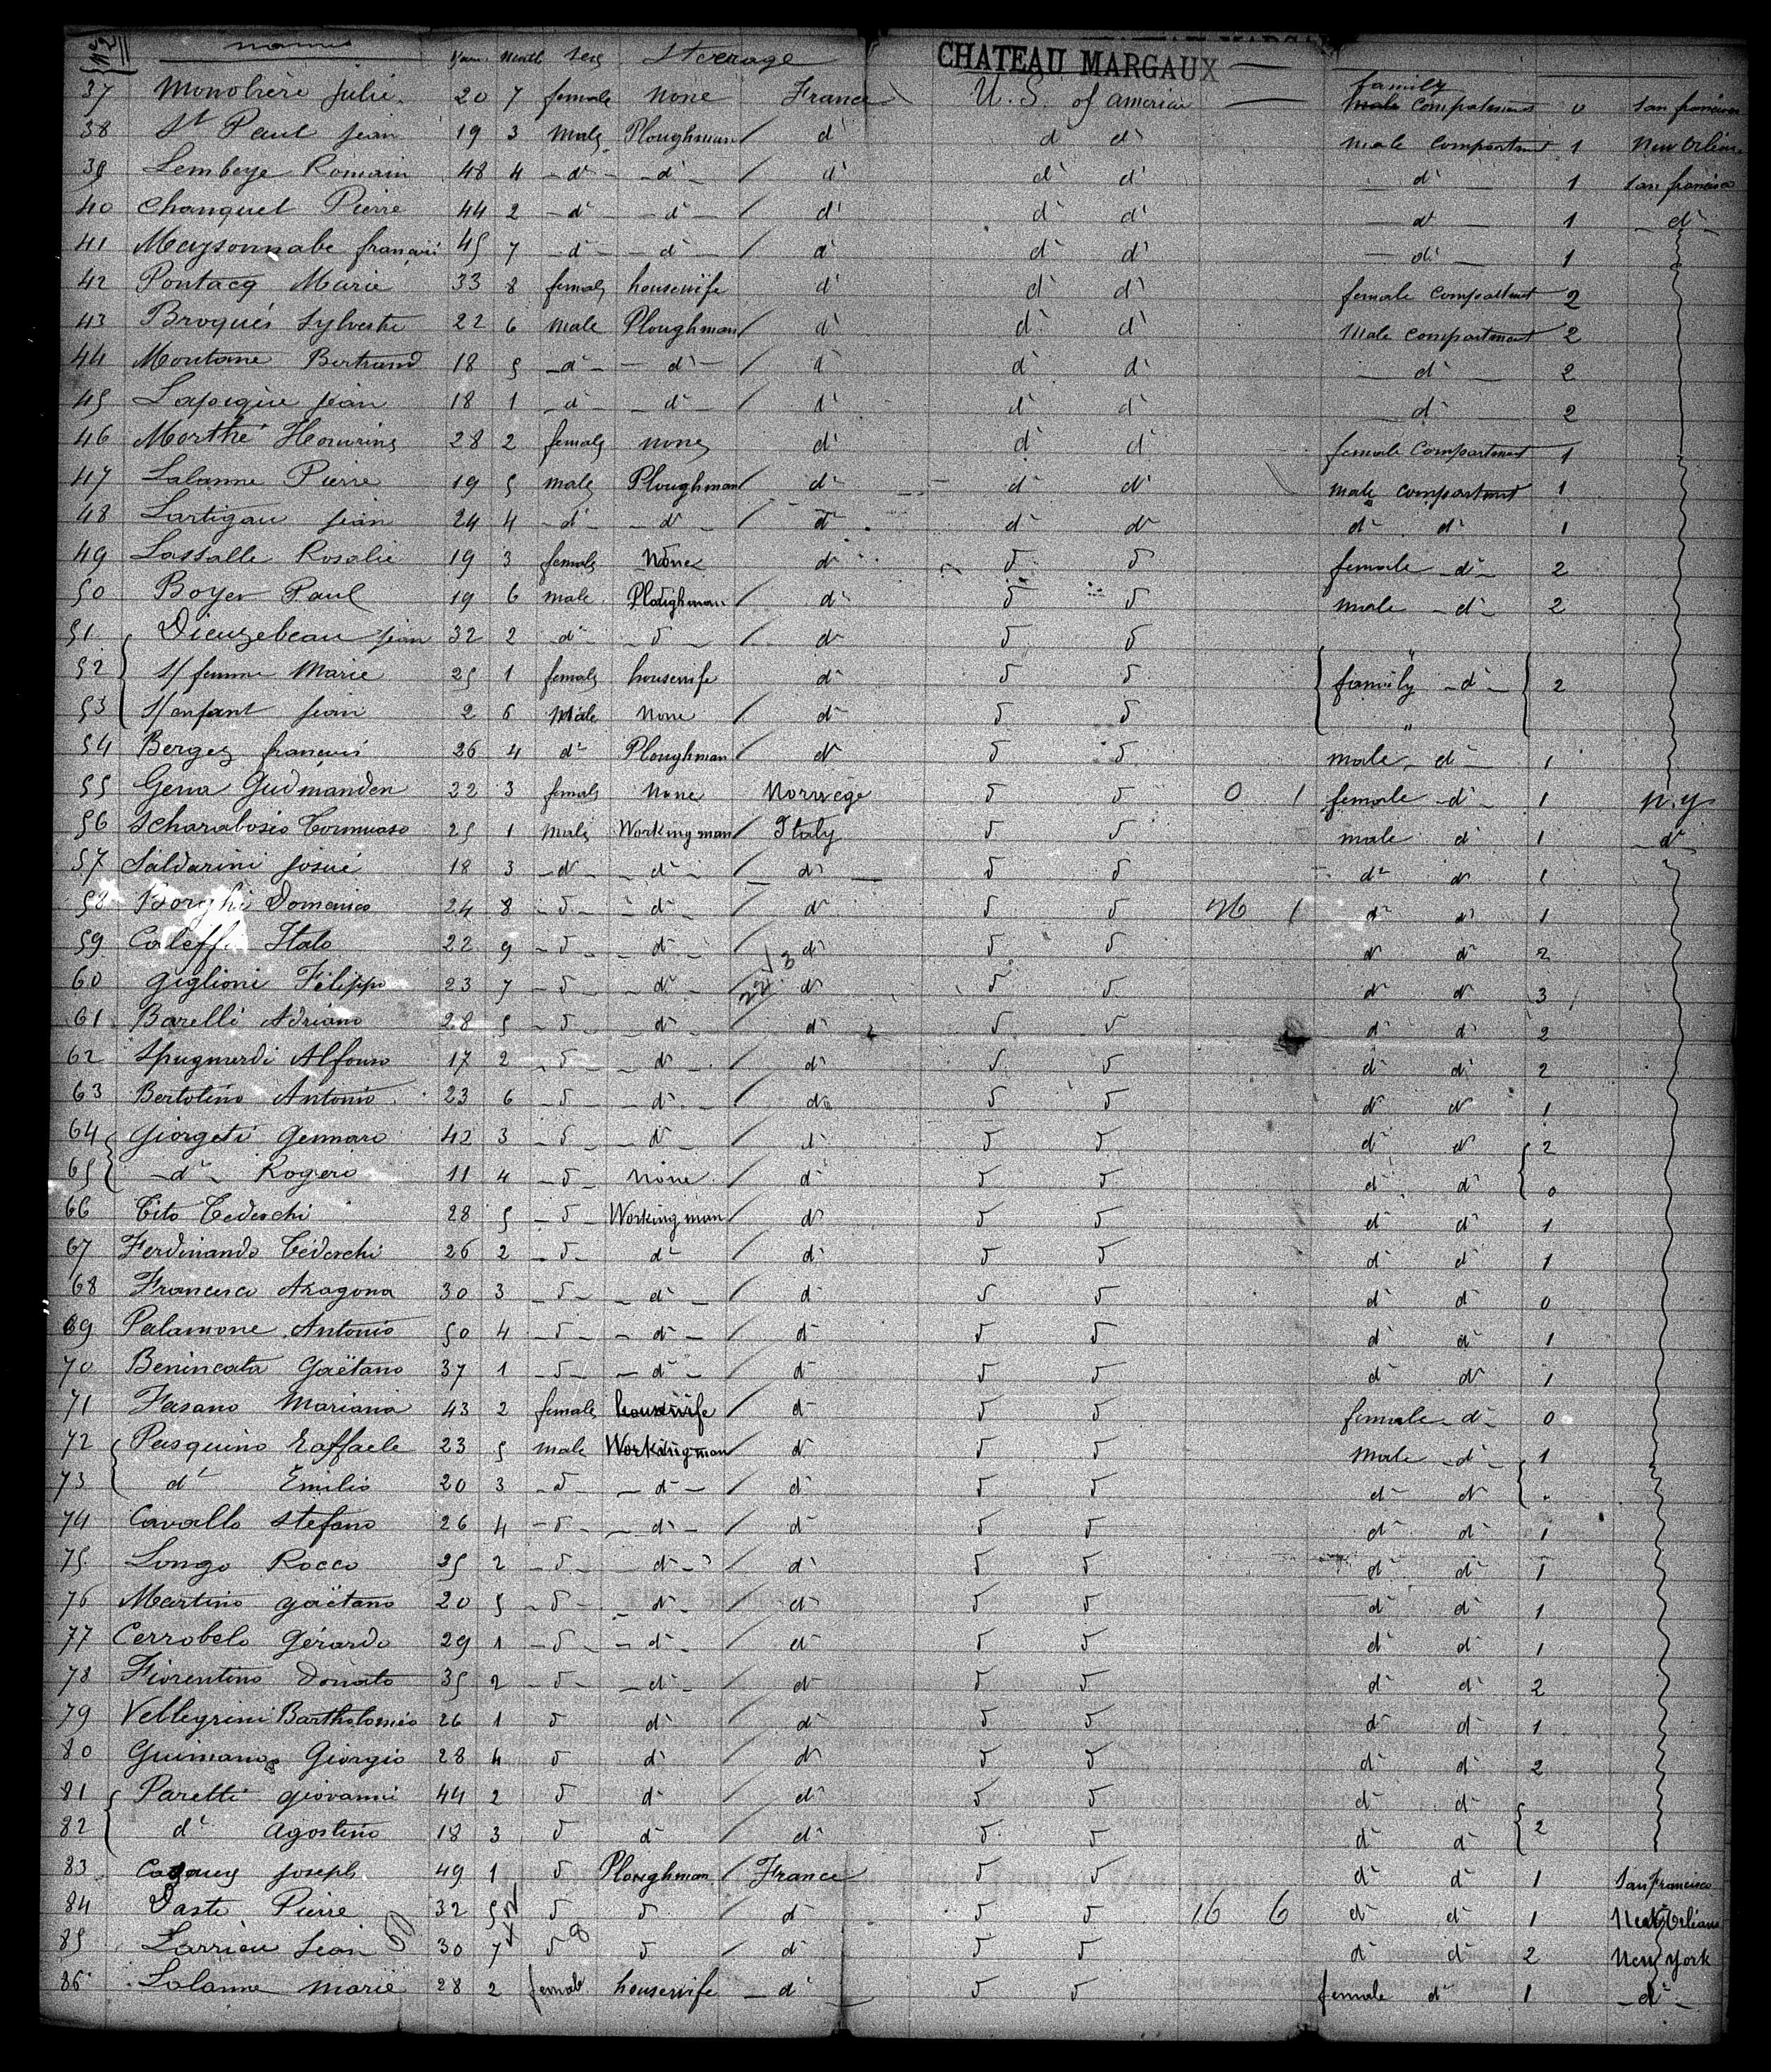 Nº 2 names Years Month Sex Steerage CHATEAU MARGAUX
37 Julie 20 7 female none France U.S. of america family compartment 0 San francisco
38 St Paul Jean 19 3 male Ploughman / d° d° d° male compartment 1 New Orléans
39 Lembeye Romain 48 4 - d° - - d° - / d° d° d° d° 1 San francisco
40 Changuet Pierre 44 2 - d° - - d° - / d° d° d° d° 1 - d° -
41 Maysonnabe françois 45 7 - d° - - d° - / d° d° d° d° 1
42 Pontacq Marie 33 8 female housewife d° d° d° female compartment 2
43 Broqués Sylvestre 22 6 male Ploughman / d° d° d° Male compartment 2
44 Montané Bertrand 18 5 - d° - - d° - / d° d° d° d° 2
45 Jean 18 1 - d° - - d° - / d° d° d° d° 2
46 28 2 female none d° d° d° female compartment 1
47 Lalanne Pierre 19 5 male Ploughman / d° d° d° male compartment 1
48 Lartigau Jean 24 4 - d° - - d° - / d° d° d° d° d° 1
49 Lassalle Rosalie 19 3 female None d° d° d° female - d° - 2
50 Boyer Paul 19 6 male Ploughman / d° d° d° male - d° - 2
51 Dieuzebeau Jean 32 2 d° d° / d° d° d° "
52 s/ femme Marie 25 1 female housewife d° d° d° family - d° - 2
53 s/ enfant Jean 2 6 Male none / d° d° d° "
54 Bergez françois 26 4 d° Ploughman / d° d° d° male - d° - 1
55 Gena Gudmanden 22 3 female none Norwege d° d° 0 1 female - d° - 1 N.Y
56 25 1 male Working man / Italy d° d° male d° 1 - d° -
57 Saldarini Josué 18 3 - d° - - d° - d° d° d° d° d° 1
58 Borghi Domenico 24 8 - d° - - d° - / d° d° d° 26 1 d° d° 1
59 Caleffi Italo 22 9 - d° - - d° - / d° d° d° d° d° 2
60 Giglioni Filippo 23 7 - d° - - d° - d° d° d° d° d° 3
61 Barelli Adriano 28 5 - d° - - d° - / d° d° d° d° d° 2
62 Alfonso 17 2 - d° - - d° - / d° d° d° d° d° 2
63 Bertolino Antonio 23 6 - d° - - d° - / d° d° d° d° d° 1
64 Giorgeti Gennaro 42 3 - d° - - d° - / d° d° d° d° d° 2
65 - d° - Rogero 11 4 - d° - none / d° d° d° d° d° 0
66 Tito Tedeschi 28 5 - d° - Working man / d° d° d° d° d° 1
67 Ferdinando Tedeschi 26 2 - d° - d° / d° d° d° d° d° 1
68 Francesco Aragona 30 3 - d° - - d° - / d° d° d° d° d° 0
69 Palamone Antonio 50 4 - d° - - d° - / d° d° d° d° d° 1
70 Benincata Gaëtano 37 1 - d° - - d° - / d° d° d° d° d° 1
71 Fasano Mariania 43 2 female housewife / d° d° d° female - d° - 0
72 Pasquino Raffaele 23 5 male Working man / d° d° d° Male - d° - 1
73 d° Emilio 20 3 - d° - - d° - / d° d° d° d° d°
74 Cavallo Stefano 26 4 - d° - - d° - / d° d° d° d° d° 1
75 Longo Rocco 25 2 - d° - - d° - / d° d° d° d° d° 1
76 Martino Gaëtano 20 5 - d° - - d° - / d° d° d° d° d° 1
77 Cerrobelo Gérardo 29 1 - d° - - d° - / d° d° d° d° d° 1
78 Fiorentino Donato 35 2 - d° - - d° - / d° d° d° d° d° 2
79 Vellegrini Bartholoméo 26 1 d° d° / d° d° d° d° d° 1
80 Giorgio 28 4 d° d° / d° d° d° d° d° 2
81 Paretti Giovanni 44 2 d° d° / d° d° d° d° d°
82 d° Agostino 18 3 d° d° / d° d° d° d° d° 2
83 Joseph 49 1 d° Ploughman / France d° d° d° d° 1 San Francisco
84 Daste Pierre 32 5 d° d° / d° d° d° 16 6 d° d° 1 New Orléans
85 Larrieu Jean 30 7 d° d° / d° d° d° d° d° 2 New York
86 Lalanne Marie 28 2 female housewife - d° d° d° female d° 1 - d° -